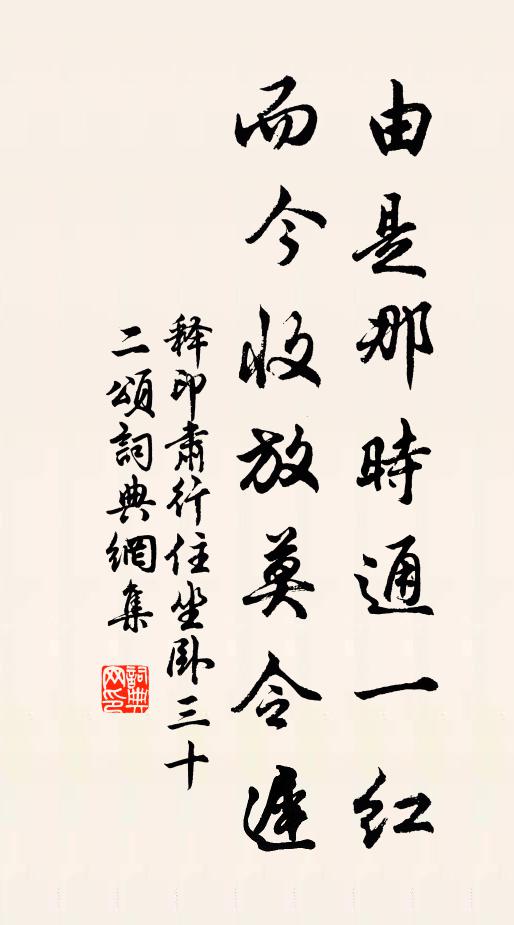 由是那時通一紅
而今收放莫令遲
释印肅行住坐卧三十
二頌詞典網集
詞典
网印